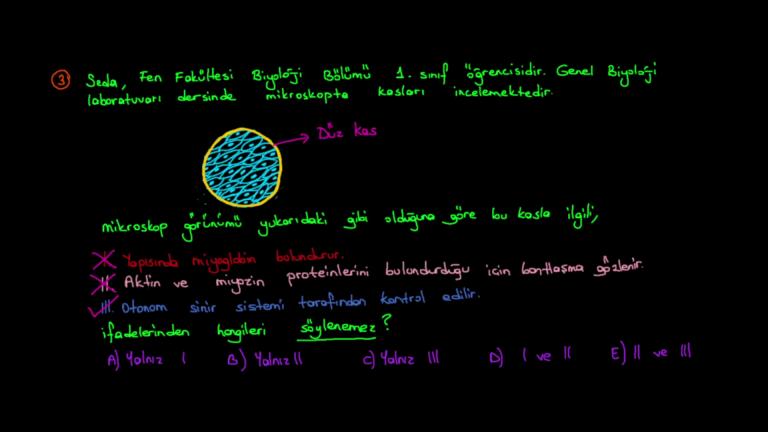 3 Seda, Fen Fakültesi Biyoloji Bölümü 1. sınıf öğrencisidir. Genel Biyoloji
laboratuvarı dersinde mikroskopta kasları incelemektedir.
Düz kas
mikroskop görünümü yukarıdaki gibi olduğuna göre bu kasla ilgili,
I. Yapısında miyoglobin bulundurur.
II. Aktin ve miyozin proteinlerini bulundurduğu için bantlaşma gözlenir.
III. Otonom sinir sistemi tarafından kontrol edilir.
ifadelerinden hangileri söylenemez?
A) Yalnız I B) Yalnız II C) Yalnız III D) I ve II E) II ve III